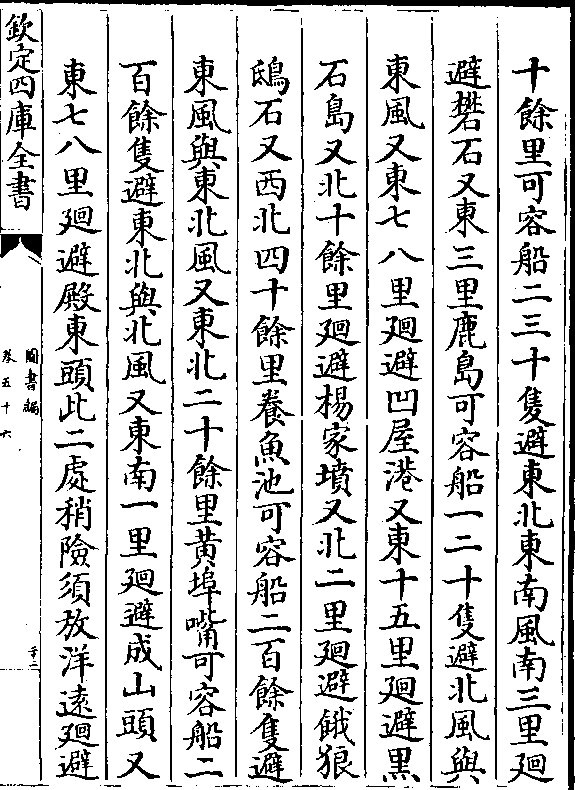 十餘里可容船二三十隻避東北東南風南三里廻
避礬石又東三里鹿島可容船一二十隻避北風與
東風又東七八里廻避凹屋港又東十五里廻避黑
石島又北十餘里廻避楊家墳又北二里廻避餓狼
鴟石又西北四十餘里養魚池可容船二百餘隻避
東風與東北風又東北二十餘里黃埠嘴可容船二
百餘隻避東北與北風又東南一里廻避成山頭又
東七八里廻避殿東頭此二處稍險須放洋遠廻避
欽定四庫全書
圖書編
卷五十六